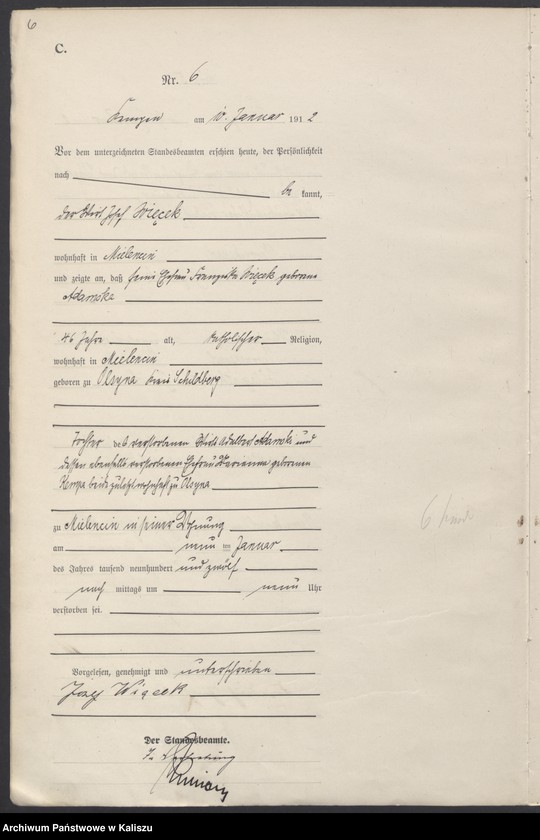 6
C.
Nr. 6
Kempen am 10. Januar 1912
Vor dem unterzeichneten Standesbeamten erschien heute, der Persönlichkeit
nach
be kannt,
der Wirt Josef Więcek
wohnhaft in Mielencin
und zeigte an, daß seine Ehefrau Franziska Więcek geborene
Adamska
46 Jahre alt, katholischer Religion,
wohnhaft in Mielencin
geboren zu Olsyna Kreis Schildberg
Tochter des verstorbenen Wirts Adalbert Adamski und
dessen ebenfalls verstorbenen Ehefrau Marianna geborenen
Kempa beide zuletzt wohnhaft zu Olsyna
zu Mielencin in seiner Wohnung
am neun ten Januar
des Jahres tausend neunhundert und zwölf
nach mittags um neun Uhr
verstorben sei.
Vorgelesen, genehmigt und unterschrieben
Józef Więcek
Der Standesbeamte.
In Vertretung
6
Archiwum Państwowe w Kaliszu